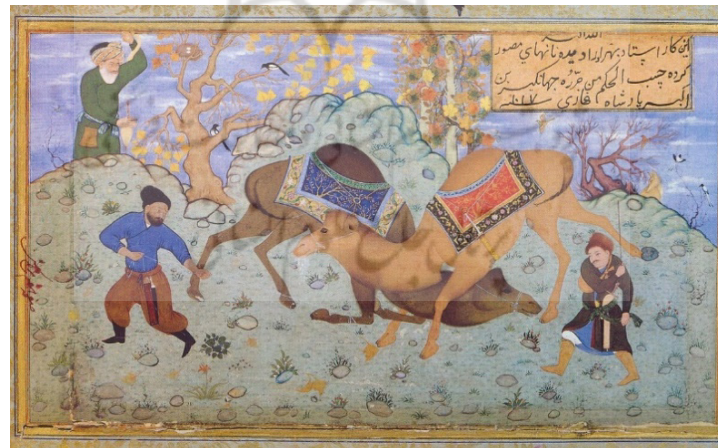 الله اکبر
این کار استاد بهزاد را دیده نانهای مصور
کرده حسب الحکم من حرره جهانگیر بن
اکبر پادشاه غازی ۱۰۱۷